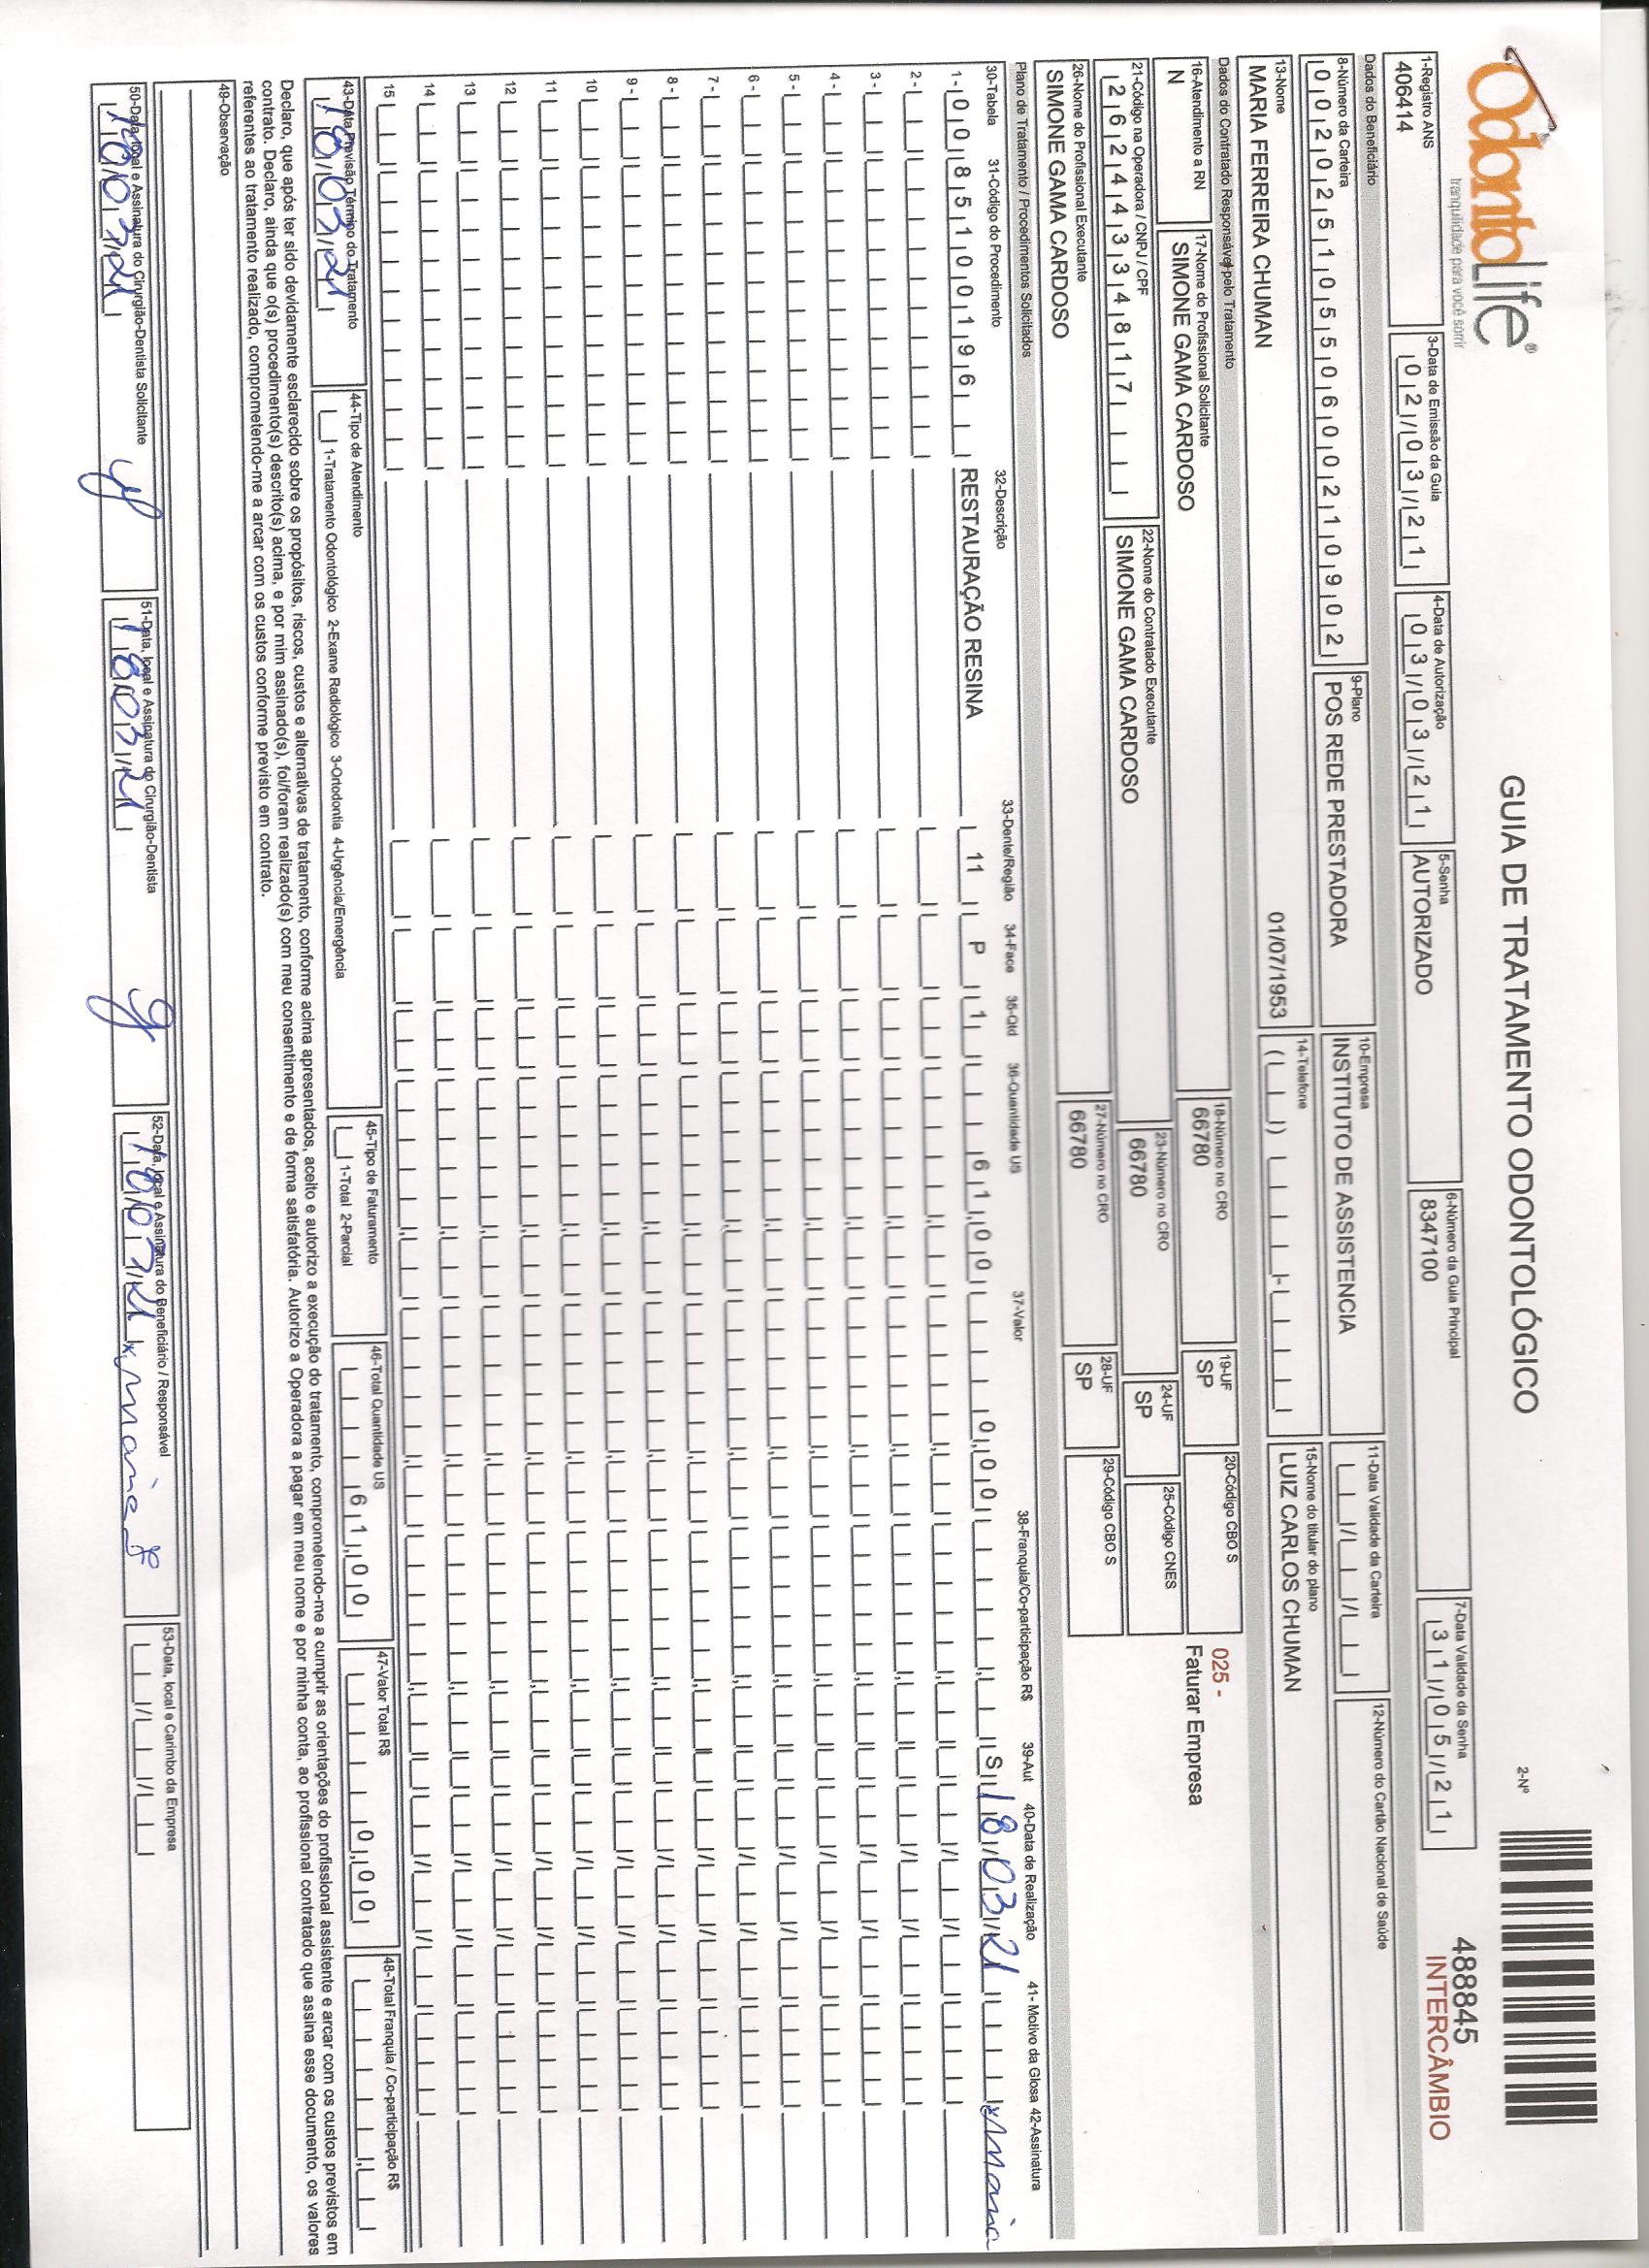 OdontoLife®
tranquilidade para você sorrir
GUIA DE TRATAMENTO ODONTOLÓGICO
2-Nº
488845
INTERCÂMBIO
1-Registro ANS
406414
3-Data de Emissão da Guia
02/03/21
4-Data de Autorização
03/03/21
5-Senha
AUTORIZADO
6-Número da Guia Principal
8347100
7-Data Validade da Senha
31/05/21
Dados do Beneficiário
8-Número da Carteira
00202510550600210902
9-Plano
POS REDE PRESTADORA
10-Empresa
INSTITUTO DE ASSISTENCIA
11-Data Validade da Carteira
12-Número do Cartão Nacional de Saúde
13-Nome
MARIA FERREIRA CHUMAN 01/07/1953
14-Telefone
15-Nome do titular do plano
LUIZ CARLOS CHUMAN
Dados do Contratado Responsável pelo Tratamento
16-Atendimento a RN
N
17-Nome do Profissional Solicitante
SIMONE GAMA CARDOSO
18-Número no CRO
66780
19-UF
SP
20-Código CBO S
025 -
Faturar Empresa
21-Código na Operadora / CNPU / CPF
26244334817
22-Nome do Contratado Executante
SIMONE GAMA CARDOSO
23-Número no CRO
66780
24-UF
SP
25-Código CNES
26-Nome do Profissional Executante
SIMONE GAMA CARDOSO
27-Número no CRO
66780
28-UF
SP
29-Código CBO S
Plano de Tratamento / Procedimentos Solicitados
30-Tabela 31-Código do Procedimento 32-Descrição 33-Dente/Região 34-Face 35-Qtd 36-Quantidade US 37-Valor 38-Franquia/Co-participação R$ 39-Aut 40-Data de Realização 41- Motivo da Glosa 42-Assinatura
1- 00 85100196 RESTAURAÇÃO RESINA 11 P 1 61,00 0,00 S 18/03/21 x Maria
2-
3-
4-
5-
6-
7-
8-
9-
10
11
12
13
14
15
43-Data Previsão Término do Tratamento
18/03/21
44-Tipo de Atendimento
1-Tratamento Odontológico 2-Exame Radiológico 3-Ortodontia 4-Urgência/Emergência
45-Tipo de Faturamento
1-Total 2-Parcial
46-Total Quantidade US
61,00
47-Valor Total R$
0,00
48-Total Franquia / Co-participação R$
Declaro, que após ter sido devidamente esclarecido sobre os propósitos, riscos, custos e alternativas de tratamento, conforme acima apresentados, aceito e autorizo a execução do tratamento, comprometendo-me a cumprir as orientações do profissional assistente e arcar com os custos previstos em
contrato. Declaro, ainda que o(s) procedimento(s) descrito(s) acima, e por mim assinado(s), foi/foram realizado(s) com meu consentimento e de forma satisfatória. Autorizo a Operadora a pagar em meu nome e por minha conta, ao profissional contratado que assina esse documento, os valores
referentes ao tratamento realizado, comprometendo-me a arcar com os custos conforme previsto em contrato.
49-Observação
50-Data, local e Assinatura do Cirurgião-Dentista Solicitante
18/03/21
51-Data, local e Assinatura do Cirurgião-Dentista
18/03/21
52-Data, local e Assinatura do Beneficiário / Responsável
18/03/21 x Maria
53-Data, local e Carimbo da Empresa